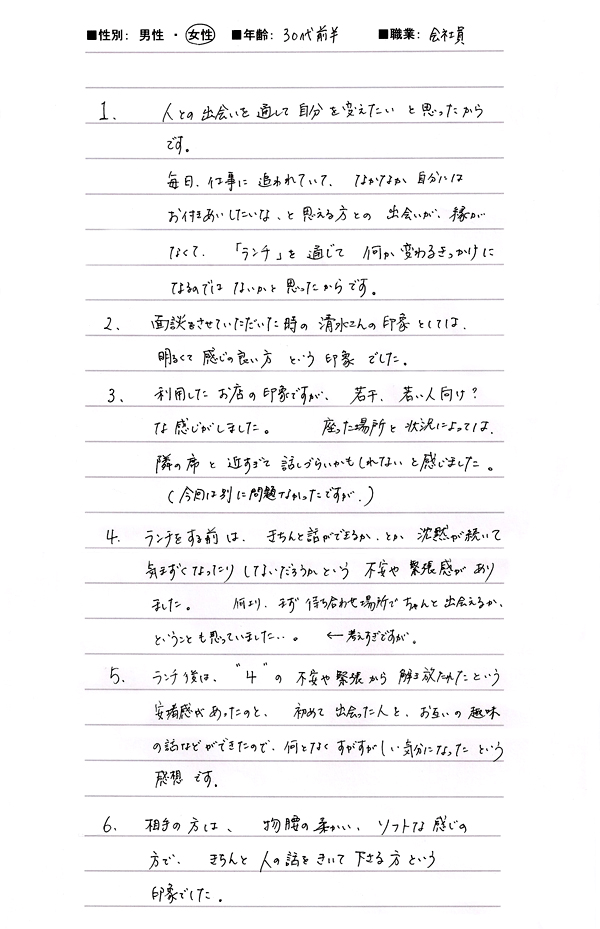 ■性別: 男性 ・ 女性 ■年齢: 30代前半 ■職業: 会社員
1、 人との出会いを通して自分を変えたいと思ったから
です。
毎日、仕事に追われていて、なかなか自分には
お付きあいしたいな、と思える方との出会いが、縁が
なくて、「ランチ」を通じて何か変わるきっかけに
なるのではないかと思ったからです。
2、 面談をさせていただいた時の清水さんの印象としては、
明るくて感じの良い方という印象でした。
3、 利用したお店の印象ですが、若干、若い人向け?
な感じがしました。 座った場所と状況によっては、
隣の席と近すぎて話しづらいかもしれないと感じました。
(今回は別に問題なかったですが。)
4、 ランチをする前は、きちんと話ができるか、とか沈黙が続いて
気まずくなったりしないだろうかという不安や緊張感があり
ました。 何より、まず待ち合わせ場所でちゃんと出会えるか、
ということも思っていました・・。 ←考えすぎですが。
5、 ランチ後は、"4"の不安や緊張から解き放たれたという
安堵感があったのと、初めて出会った人と、お互いの趣味
の話などができたので、何となくすがすがしい気分になったという
感想です。
6、 相手の方は、物腰の柔かい、ソフトな感じの
方で、きちんと人の話をきいて下さる方という
印象でした。